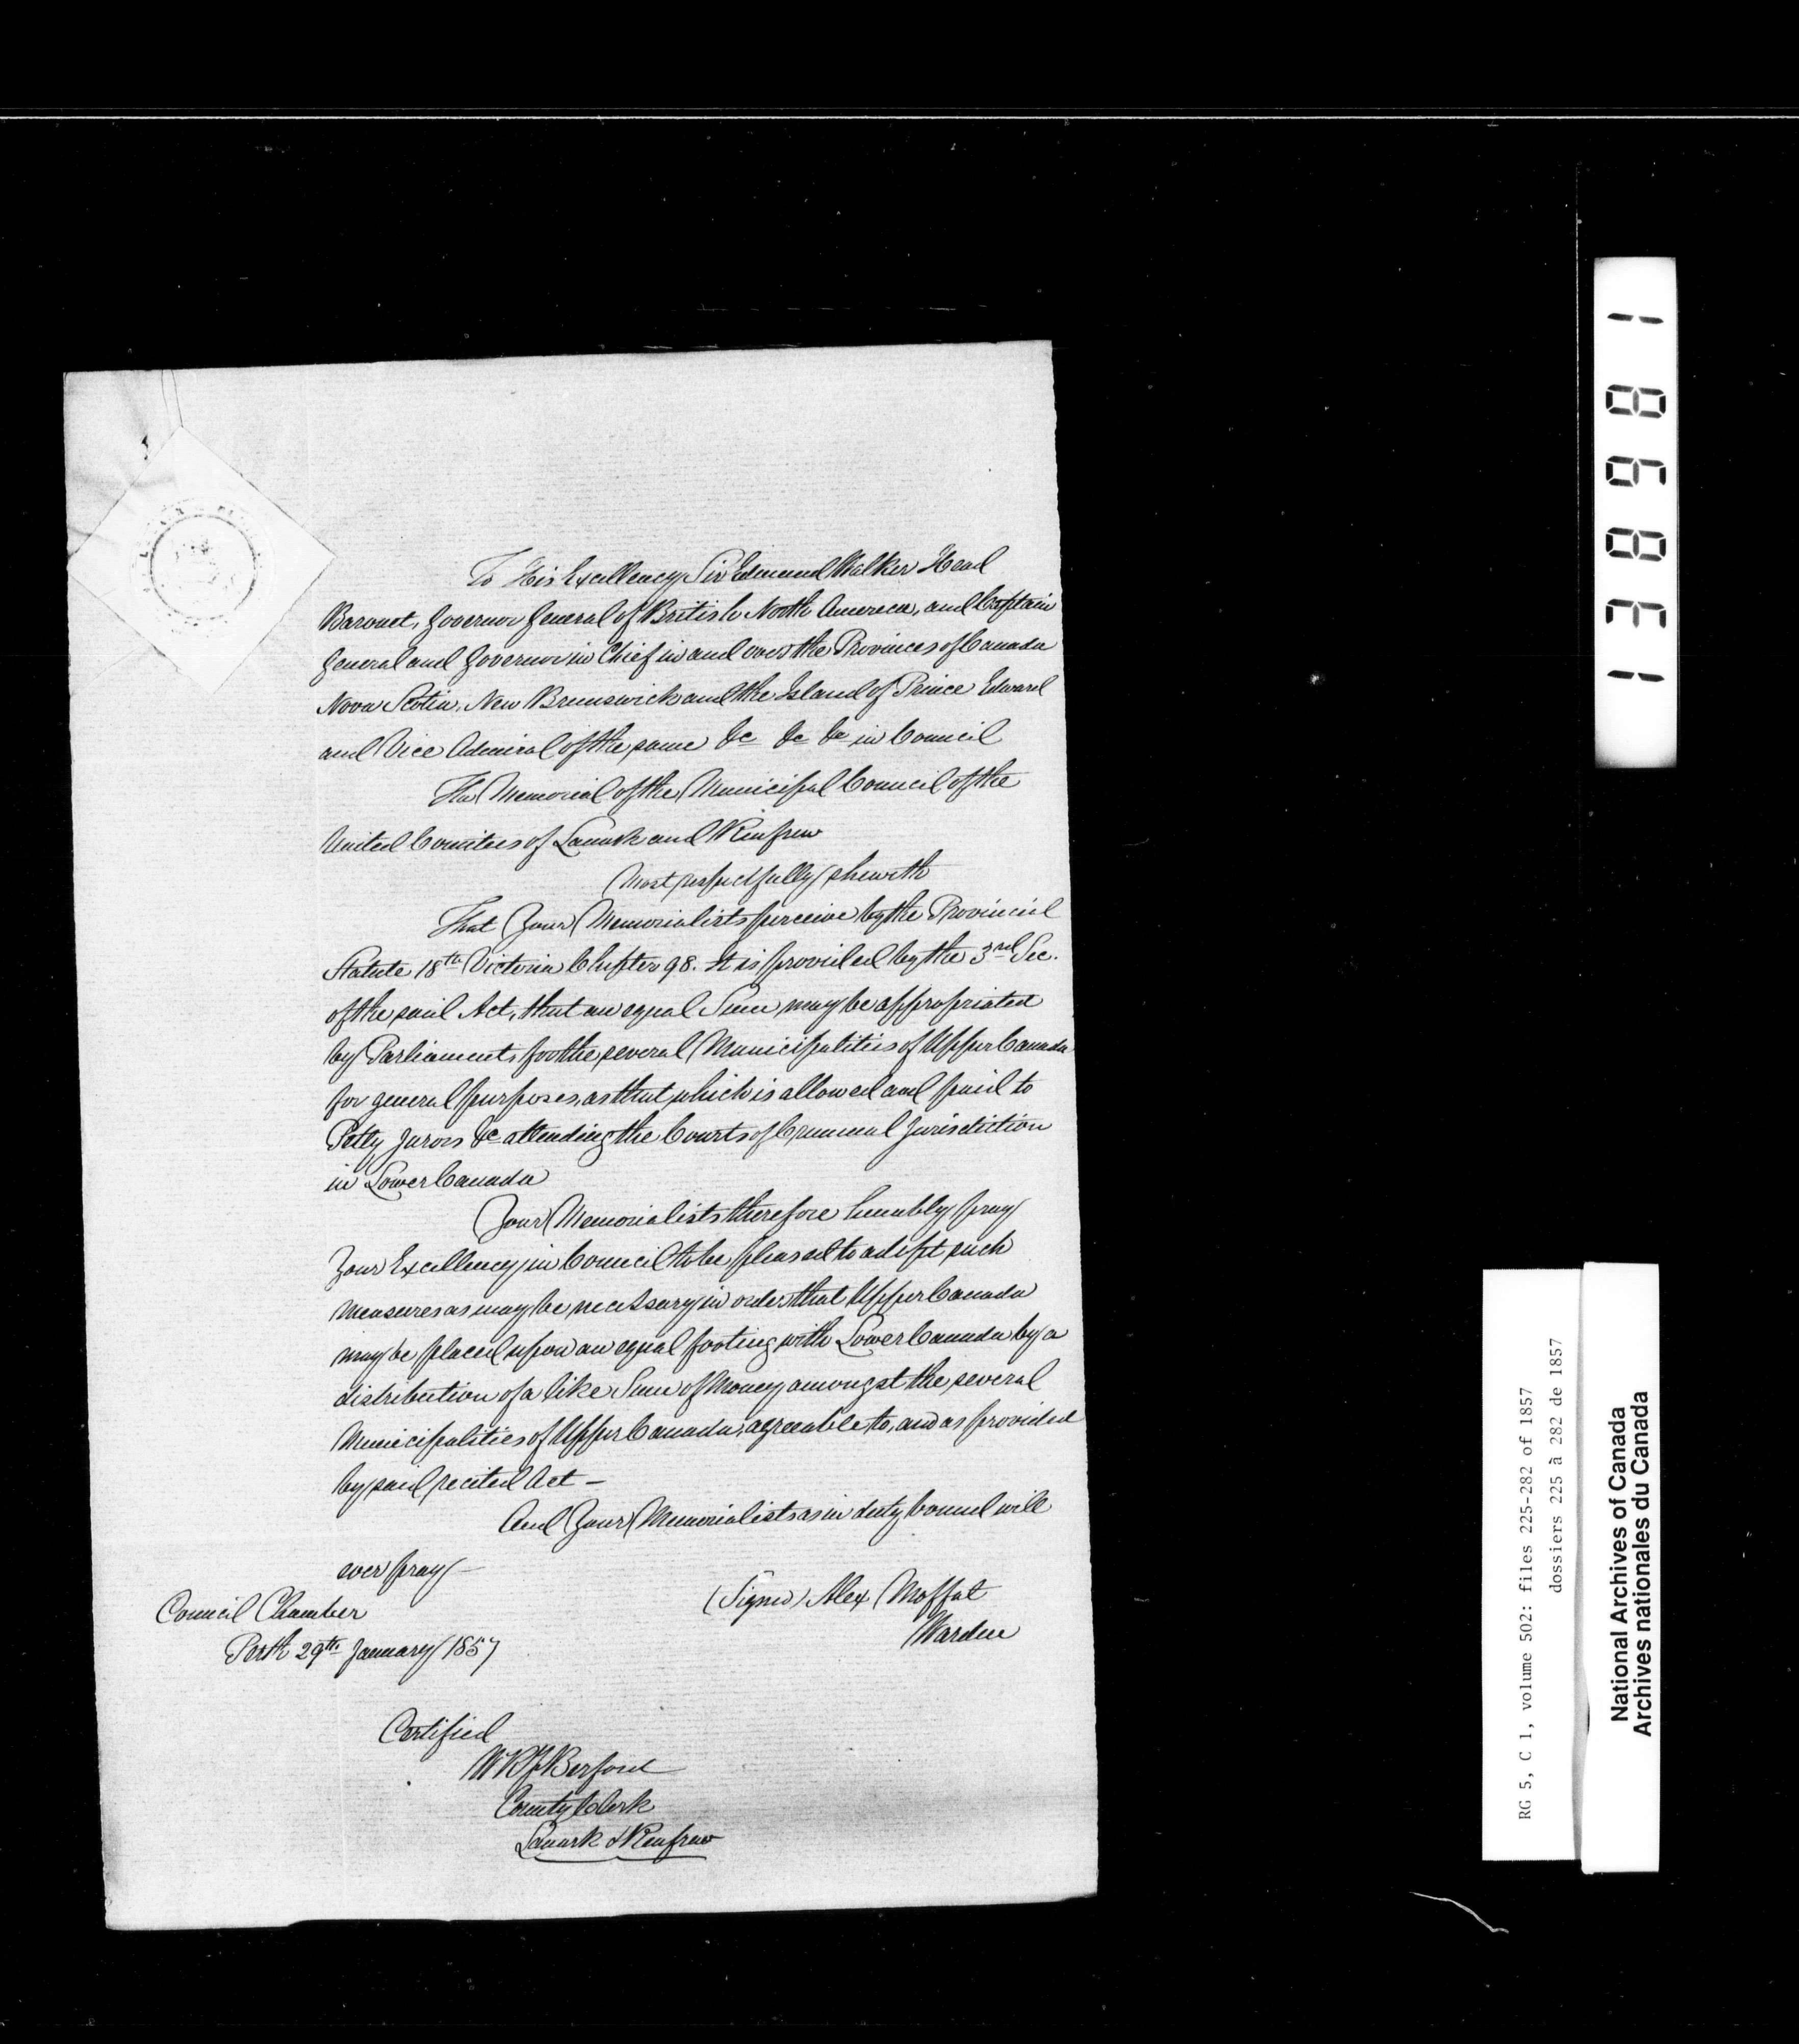 To His Excellency Sir Edmund Walker Head
Baronet, Governor General of British North America, and Captain
General and Governor in Chief in and over the Provinces of Canada
Nova Scotia, New Brunswick and the Island of Prince Edward
and Vice Admiral of the same &c &c &c in Council
The Memorial of the Municipal Council of the
United Counties of Lanark and Renfrew
Most respectfully sheweth
That Your Memorialists perceive by the Provincial
Statute 18th Victoria Chapter 98. It is provided by the 3rd Sec.
of the said Act, that an equal Sum may be appropriated
by Parliament, for the several Municipalities of Upper Canada
for general purposes, as that which is allowed and paid to
Petty Jurors &c attending the Courts of Criminal Jurisdiction
in Lower Canada
Your Memorialists therefore humbly pray
Your Excellency in Council to be pleased to adopt such
measures as may be necessary in order that Upper Canada
may be placed upon an equal footing with Lower Canada by a
distribution of a like Sum of Money amongst the several
Municipalities of Upper Canada, agreeable to, and as provided
by said recited Act —
And Your Memorialists as in duty bound will
ever pray —
(Signed) Alex Moffat
Warden
Council Chamber
Perth 29th January 1857
Certified
W R F Berford
County Clerk
Lanark & Renfrew
138981
RG 5, C 1, volume 502: files 225-282 of 1857
dossiers 225 à 282 de 1857
National Archives of Canada
Archives nationales du Canada